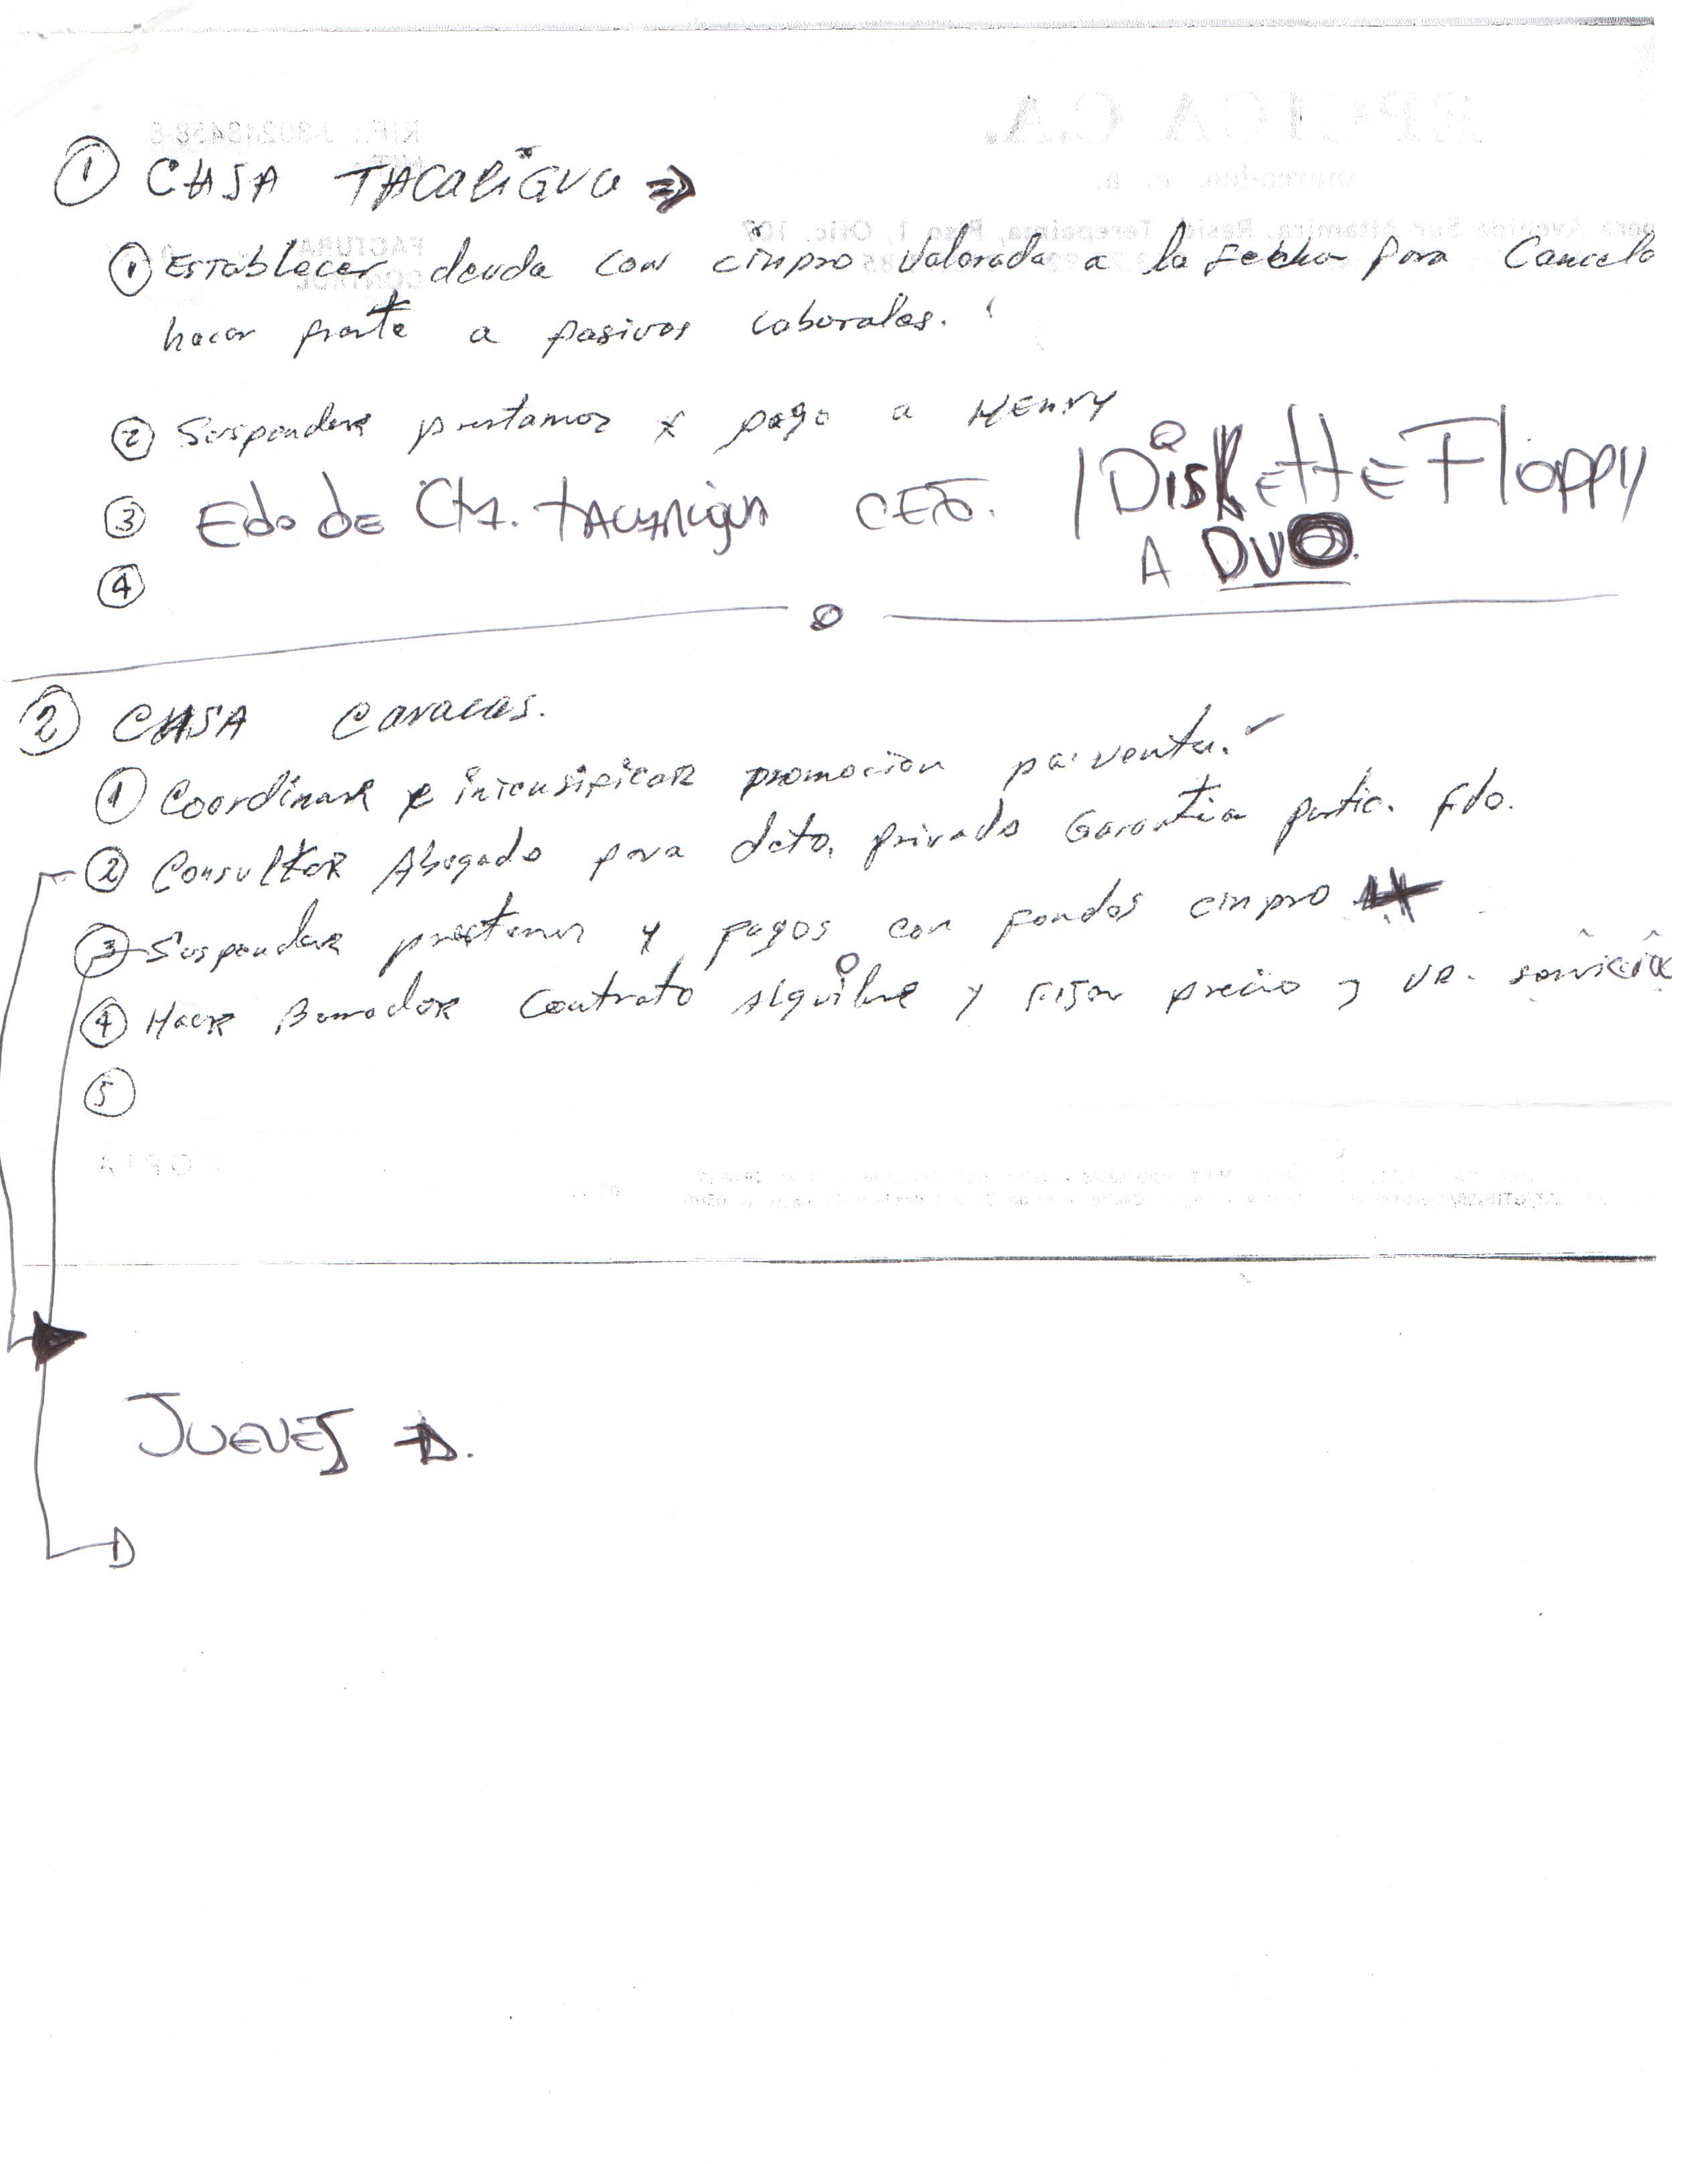 ① CASA TACARIGUA ⇒
① Establecer deuda con cinpro valorada a la fecha para Cancela
hacer frente a pasivos laborales.
② Suspender prestamos x pago a HENRY
③ Edo de Cta. TACARIGUA CEO. / DiskEttE Floppy
A DVO.
④
② CASA Caracas.
① Coordinar e intensificar promocion pa' venta. ✓
② Consultar Abogado para dcto. privado Garantia partic. Fdo.
③ Suspender prestamos y pagos con fondos cinpro
④ Hacer Borrador Contrato Alquiler y Fijar precio y VR. servicio
⑤
JUEVES →.